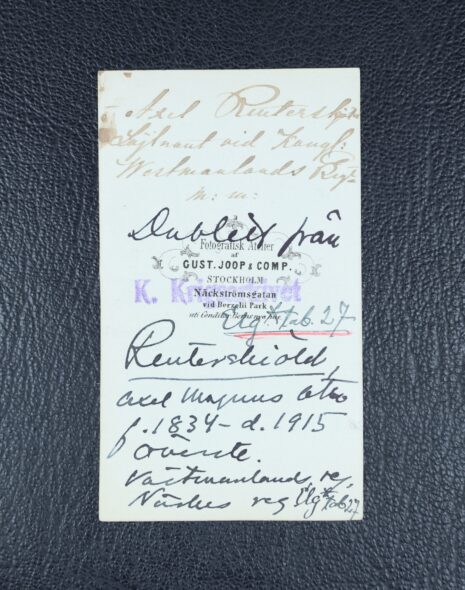 Axel Reuterskjöld
Löjtnant vid Kongl:
Westmanlands Reg:
m: m:
Dublett från
Fotografisk Atelier
af
GUST. JOOP & COMP.
STOCKHOLM
K. Krigsarkivet
Näckströmsgatan
vid Berzelii Park
Elg* tab. 27
Reuterskiöld,
Axel Magnus Otto
f. 1834 - d. 1915
överste.
Västmanlands reg,
Närkes reg Elg* tab 27